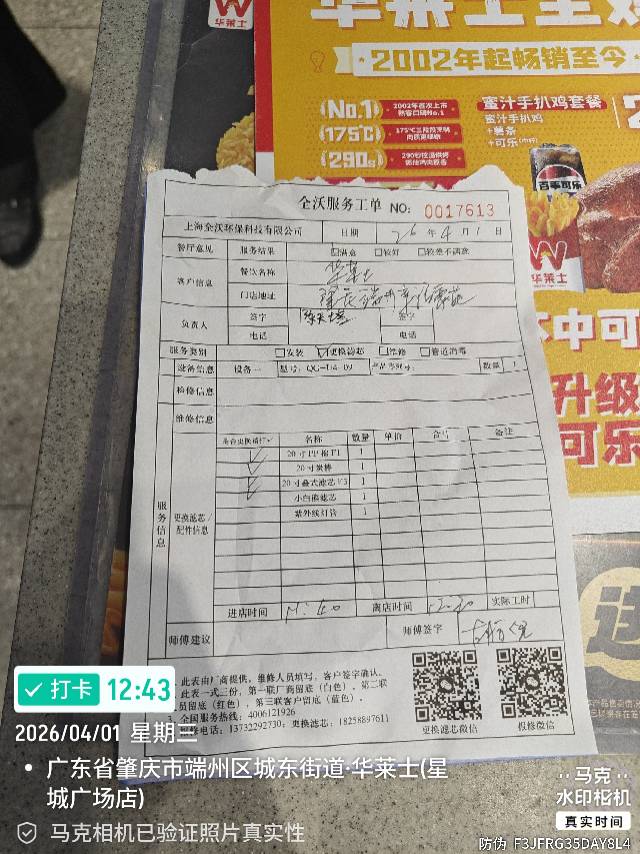 华莱士
2002年起畅销至今
No.1
2002年首次上市
175℃
290s
蜜汁手扒鸡套餐
蜜汁手扒鸡
+薯条
+可乐
百事可乐
华莱士
升级
可乐
全沃服务工单 NO: 0017613
上海全沃环保科技有限公司 日期 26年4月1日
餐厅意见 服务结果 满意 较好 较差不满意
客户信息 餐饮名称 华莱士
门店地址
负责人 签字 签字
电话 电话
服务类别 安装 更换滤芯 维修 管道消毒
设备信息 设备一 型号: 数量 1
检修信息
维修信息
名称 数量 单价 合计 备注
20寸PP棉 1
20寸炭棒 1
20寸叠式滤芯 1
小白熊滤芯 1
紫外线灯管 1
服务信息
更换滤芯/配件信息
进店时间 离店时间 12:30 实际工时
师傅建议 师傅签字
此表由厂商提供,维修人员填写,客户签字确认。
此表一式三份,第一联厂商留底(白色),第二联
员留底(红色),第三联客户留底(蓝色)。
全国服务热线:4006121926
维修电话:13732292730;更换滤芯:18258897611
更换滤芯微信 报修微信
打卡 12:43
2026/04/01 星期三
广东省肇庆市端州区城东街道·华莱士(星
城广场店)
马克相机已验证照片真实性
马克
水印相机
真实时间
防伪 F3JFRG35DAY8L4